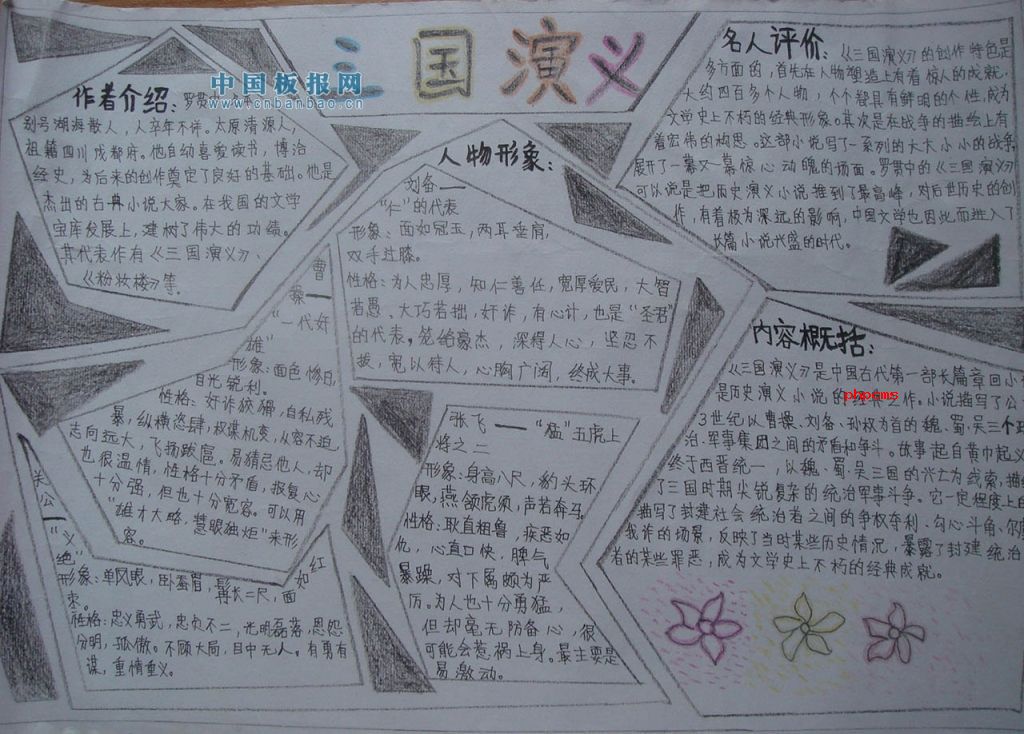 三国演义
中国板报网
www.cnbanbao.cn
作者介绍:罗贯
别号湖海散人,人卒年不祥。太原清源人,
祖籍四川成都府。他自幼喜爱读书,博洽
经史,为后来的创作奠定了良好的基础。他是
杰出的古典小说大家。在我国的文学
宝库发展上,建树了伟大的功绩。
其代表作有《三国演义》、
《粉妆楼》等。
人物形象:
刘备——
“仁”的代表
形象:面如冠玉,两耳垂肩,
双手过膝。
性格:为人忠厚,知仁善任,宽厚爱民,大智
若愚、大巧若拙,奸诈,有心计,也是“圣君”
的代表,笼络豪杰,深得人心,坚忍不
拔,宽以待人,心胸广阔,终成大事。
曹
操——
“一代奸
雄”
形象:面色惨白,
目光锐利。
性格:奸诈狡猾,自私残
暴,纵横恣肆,权谋机变,从容不迫
志向远大,飞扬跋扈。易猜忌他人,却
也很温情,性格十分矛盾,报复心
十分强,但也十分宽容。可以用
“雄才大略,慧眼独炬”来形
容。
关
公——
“义
绝”
形象:单凤眼,卧蚕眉,髯长二尺,面如红
枣。
性格:忠义勇武,忠贞不二,光明磊落,恩怨
分明,孤傲。不顾大局,目中无人。有勇有
谋,重情重义。
张飞——“猛”五虎上
将之二
形象:身高八尺,豹头环
眼,燕颔虎须,声若奔马。
性格:耿直粗鲁,疾恶如
仇,心直口快,脾气
暴躁,对下属颇为严
厉。为人也十分勇猛,
但却毫无防备心,很
可能会惹祸上身。最主要是
易激动。
名人评价:《三国演义》的创作特色是
多方面的,首先在人物塑造上有着惊人的成就,
大约四百多个人物,个个都具有鲜明的个性,成为
文学史上不朽的经典形象。其次是在战争的描绘上有
着宏伟的构思。这部小说写了一系列的大大小小的战争,
展开了一幕又一幕惊心动魄的场面。罗贯中的《三国演义》
可以说是把历史演义小说推到了最高峰,对后世历史的创
作,有着极为深远的影响,中国文学也因此而进入了
长篇小说兴盛的时代。
内容概括:
《三国演义》是中国古代第一部长篇章回小
是历史演义小说的经典之作。小说描写了公
3世纪以曹操、刘备、孙权为首的魏、蜀、吴三个政
治、军事集团之间的矛盾和争斗。故事起自黄巾起义
终于西晋统一,以魏、蜀、吴三国的兴亡为线索,描
了三国时期尖锐复杂的统治军事斗争。它一定程度上
描写了封建社会统治者之间的争权夺利、勾心斗角、尔虞
我诈的场景,反映了当时某些历史情况,暴露了封建统治
者的某些罪恶,成为文学史上不朽的经典成就。
phpcms